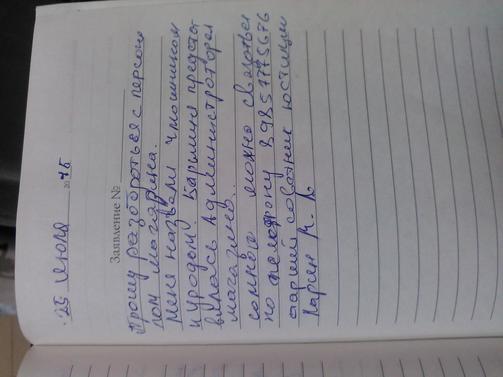 25 Июля 2015
Заявление №
Прошу разобраться с персона
лом магазина.
Меня назвали чмошником
и уродом. Барышня предста
вилась Администратором
магазина...
со мной можно связаться
по телефону 89857775676
старший советник юстиции
Ларин К. А